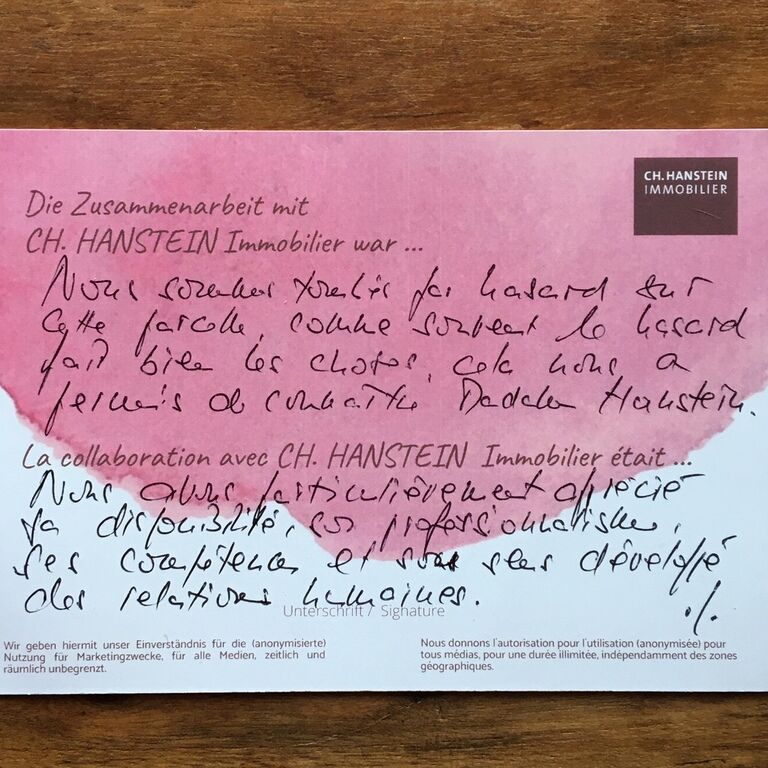 CH. HANSTEIN
IMMOBILIER
Die Zusammenarbeit mit
CH. HANSTEIN Immobilier war ...
Nous sommes tombés par hasard sur
cette parcelle, comme souvent le hasard
fait bien les choses, cela nous a
permis de connaître Madame Hanstein.
La collaboration avec CH. HANSTEIN Immobilier était ...
Nous avons particulièrement apprécié
sa disponibilité, son professionnalisme,
ses compétences et son sens développé
des relations humaines.
./.
Unterschrift / Signature
Wir geben hiermit unser Einverständnis für die (anonymisierte)
Nutzung für Marketingzwecke, für alle Medien, zeitlich und
räumlich unbegrenzt.
Nous donnons l'autorisation pour l'utilisation (anonymisée) pour
tous médias, pour une durée illimitée, indépendamment des zones
géographiques.